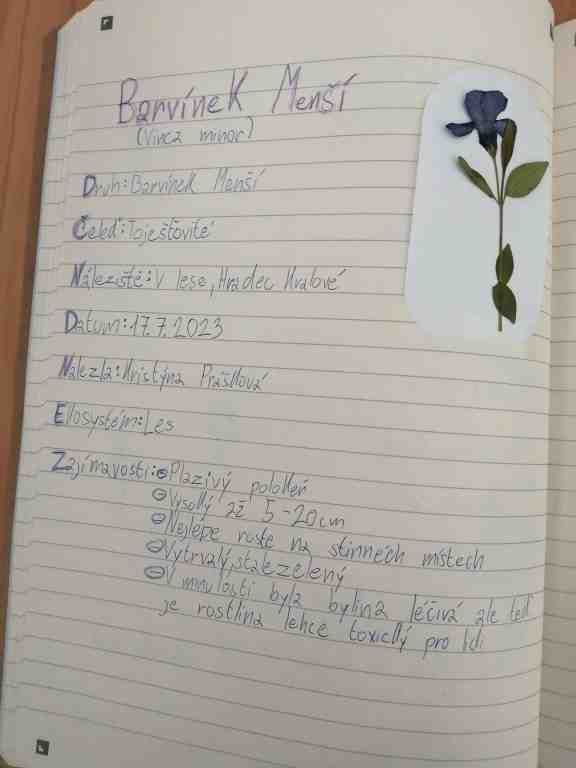 Barvínek Menší
(Vinca minor)
Druh: Barvínek Menší
Čeleď: Toješťovité
Náleziště: V lese, Hradec Králové
Datum: 17.7.2023
Nalezla: Kristýna Prášková
Ekosystém: Les
Zajímavosti: Plazivý polokeř
Vysoký až 5-20cm
Nejlépe roste na stinnéch místech
Vytrvalý, stálezelený
V minulosti byla bylina léčivá ale teď
je rostlina lehce toxický pro lidi